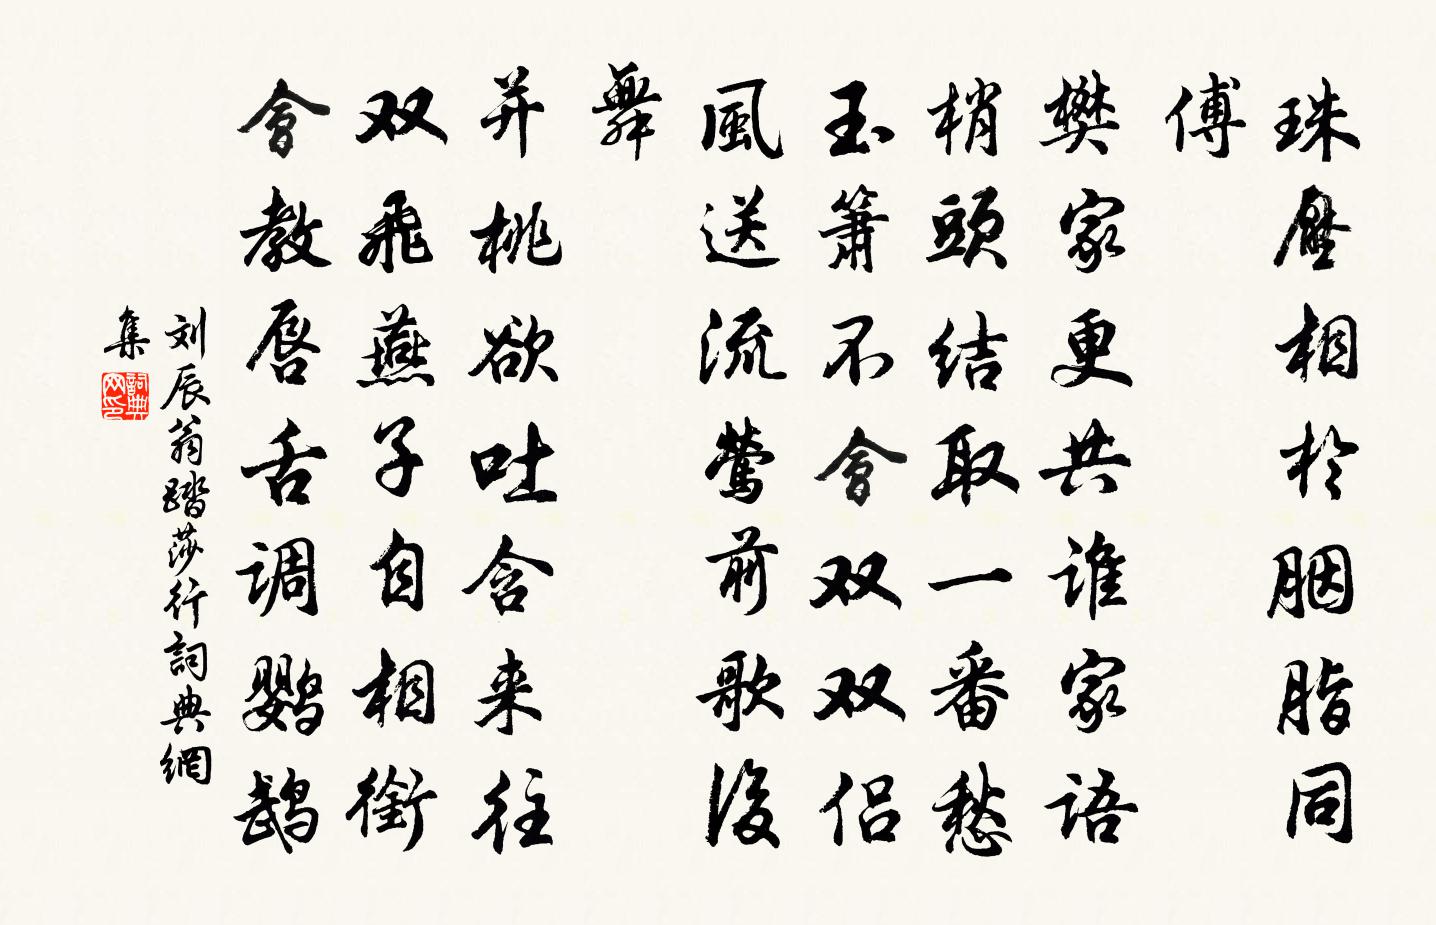 珠壓相於胭脂同
傅
樊家更共谁家语
梢頭结取一番愁
玉箫不會双双侣
風送流莺前歌後
舞
并桃欲吐含来往
双飛燕子自相銜
會教唇舌调鹦鹉
刘辰翁踏莎行詞典網
集
詞典网印